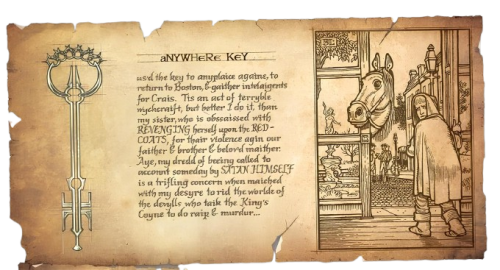 aNYWHERE KEY
us'd the key to anyplaice againe, to
return to Boston, & gaither intelaijents
for Crais. Tis an act of terryble
wychcraift, but better I do it, than
my sister, who is obscaissed with
REVENGING herself upon the RED-
COATS, for thair violence agin our
faither & brother & belov'd maither.
Aye, my dredd of beeing called to
account someday by SATAN HIMSELF
is a trifling concern when maiched
with my desyre to rid the worlde of
the devylls who taik the King's
Coyne to do raip & murdur...